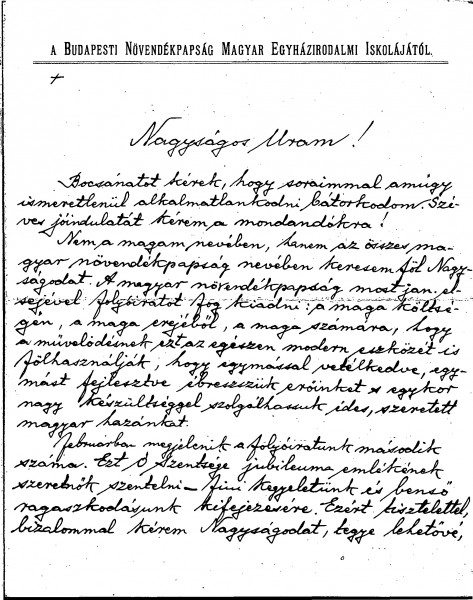 A BUDAPESTI NÖVENDÉKPAPSÁG MAGYAR EGYHÁZIRODALMI ISKOLÁJÁTÓL.
+
Nagyságos Uram!
Bocsánatot kérek, hogy soraimmal amúgy
ismeretlenül alkalmatlankodni bátorkodom. Szí-
ves jóindulatát kérem a mondandókra!
Nem a magam nevében, hanem az összes ma-
gyar növendékpapság nevében keresem föl Nagy-
ságodat. A magyar növendékpapság most jan. el-
sejével folyóiratot fog kiadni: a maga költsé-
gén, a maga erejéből, a maga számára, hogy
a művelődésnek ezt az egészen modern eszközét is
fölhasználják, hogy egymással vetélkedve, egy-
mást fejlesztve ébresszük erőinket s egykor
nagy készültséggel szolgálhassuk édes, szeretett
magyar hazánkat.
Februárban megjelenik a folyóiratunk második
száma. Ezt Ő Szentsége jubileuma emlékének
szeretnők szentelni – fiúi kegyeletünk és benső
ragaszkodásunk kifejezésére. Ezért tisztelettel,
bizalommal kérem Nagyságodat, tegye lehetővé,